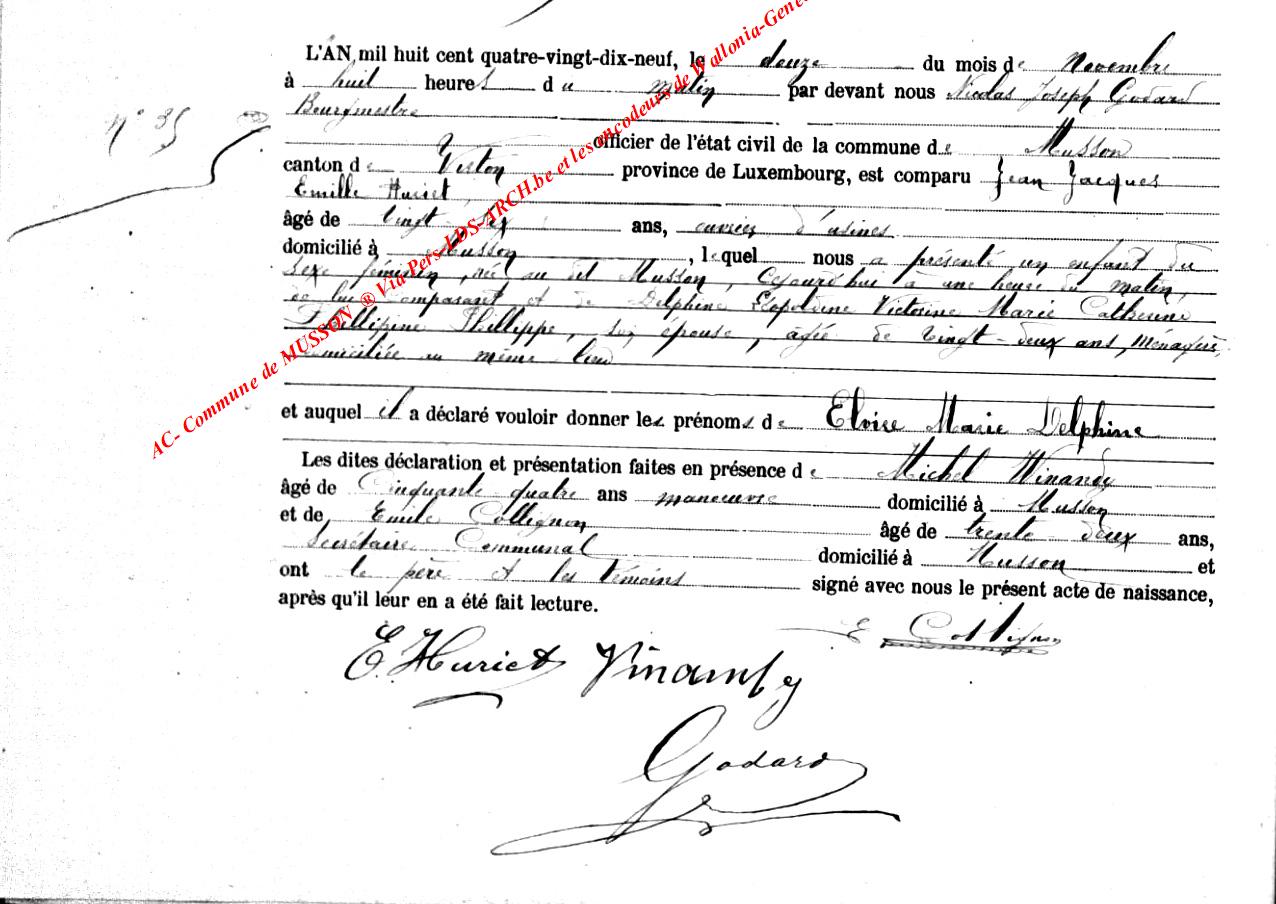 L'AN mil huit cent quatre-vingt-dix-neuf, le douze du mois de Novembre
N° 35
à huit heures du matin par devant nous Nicolas Joseph Godard
Bourgmestre
officier de l'état civil de la commune de Musson
canton de Virton province de Luxembourg, est comparu Jean Jacques
Emille Huriet,
âgé de vingt six ans, ouvrier d'usines
domicilié à Musson, lequel nous a présenté un enfant du
sexe féminin, née au dit Musson, cejourd'hui à une heure du matin,
de lui comparant et de Delphine Léopoldine Victorine Marie Catherine
Phillippe, son épouse, agée de vingt-deux ans, Ménagère,
domiciliée au même lieu
et auquel il a déclaré vouloir donner les prénoms de Eloïse Marie Delphine
Les dites déclaration et présentation faites en présence de Michel Winandy
âgé de Cinquante quatre ans manœuvre domicilié à Musson
et de Emile Collignon âgé de trente deux ans,
Secrétaire Communal domicilié à Musson et
ont le père et les témoins signé avec nous le présent acte de naissance,
après qu'il leur en a été fait lecture.
E Collignon
E. Huriet
Godard
AC- Commune de MUSSON ® Via Pers-LDS-ARCH.be et les encodeurs de Wallonia-Gene